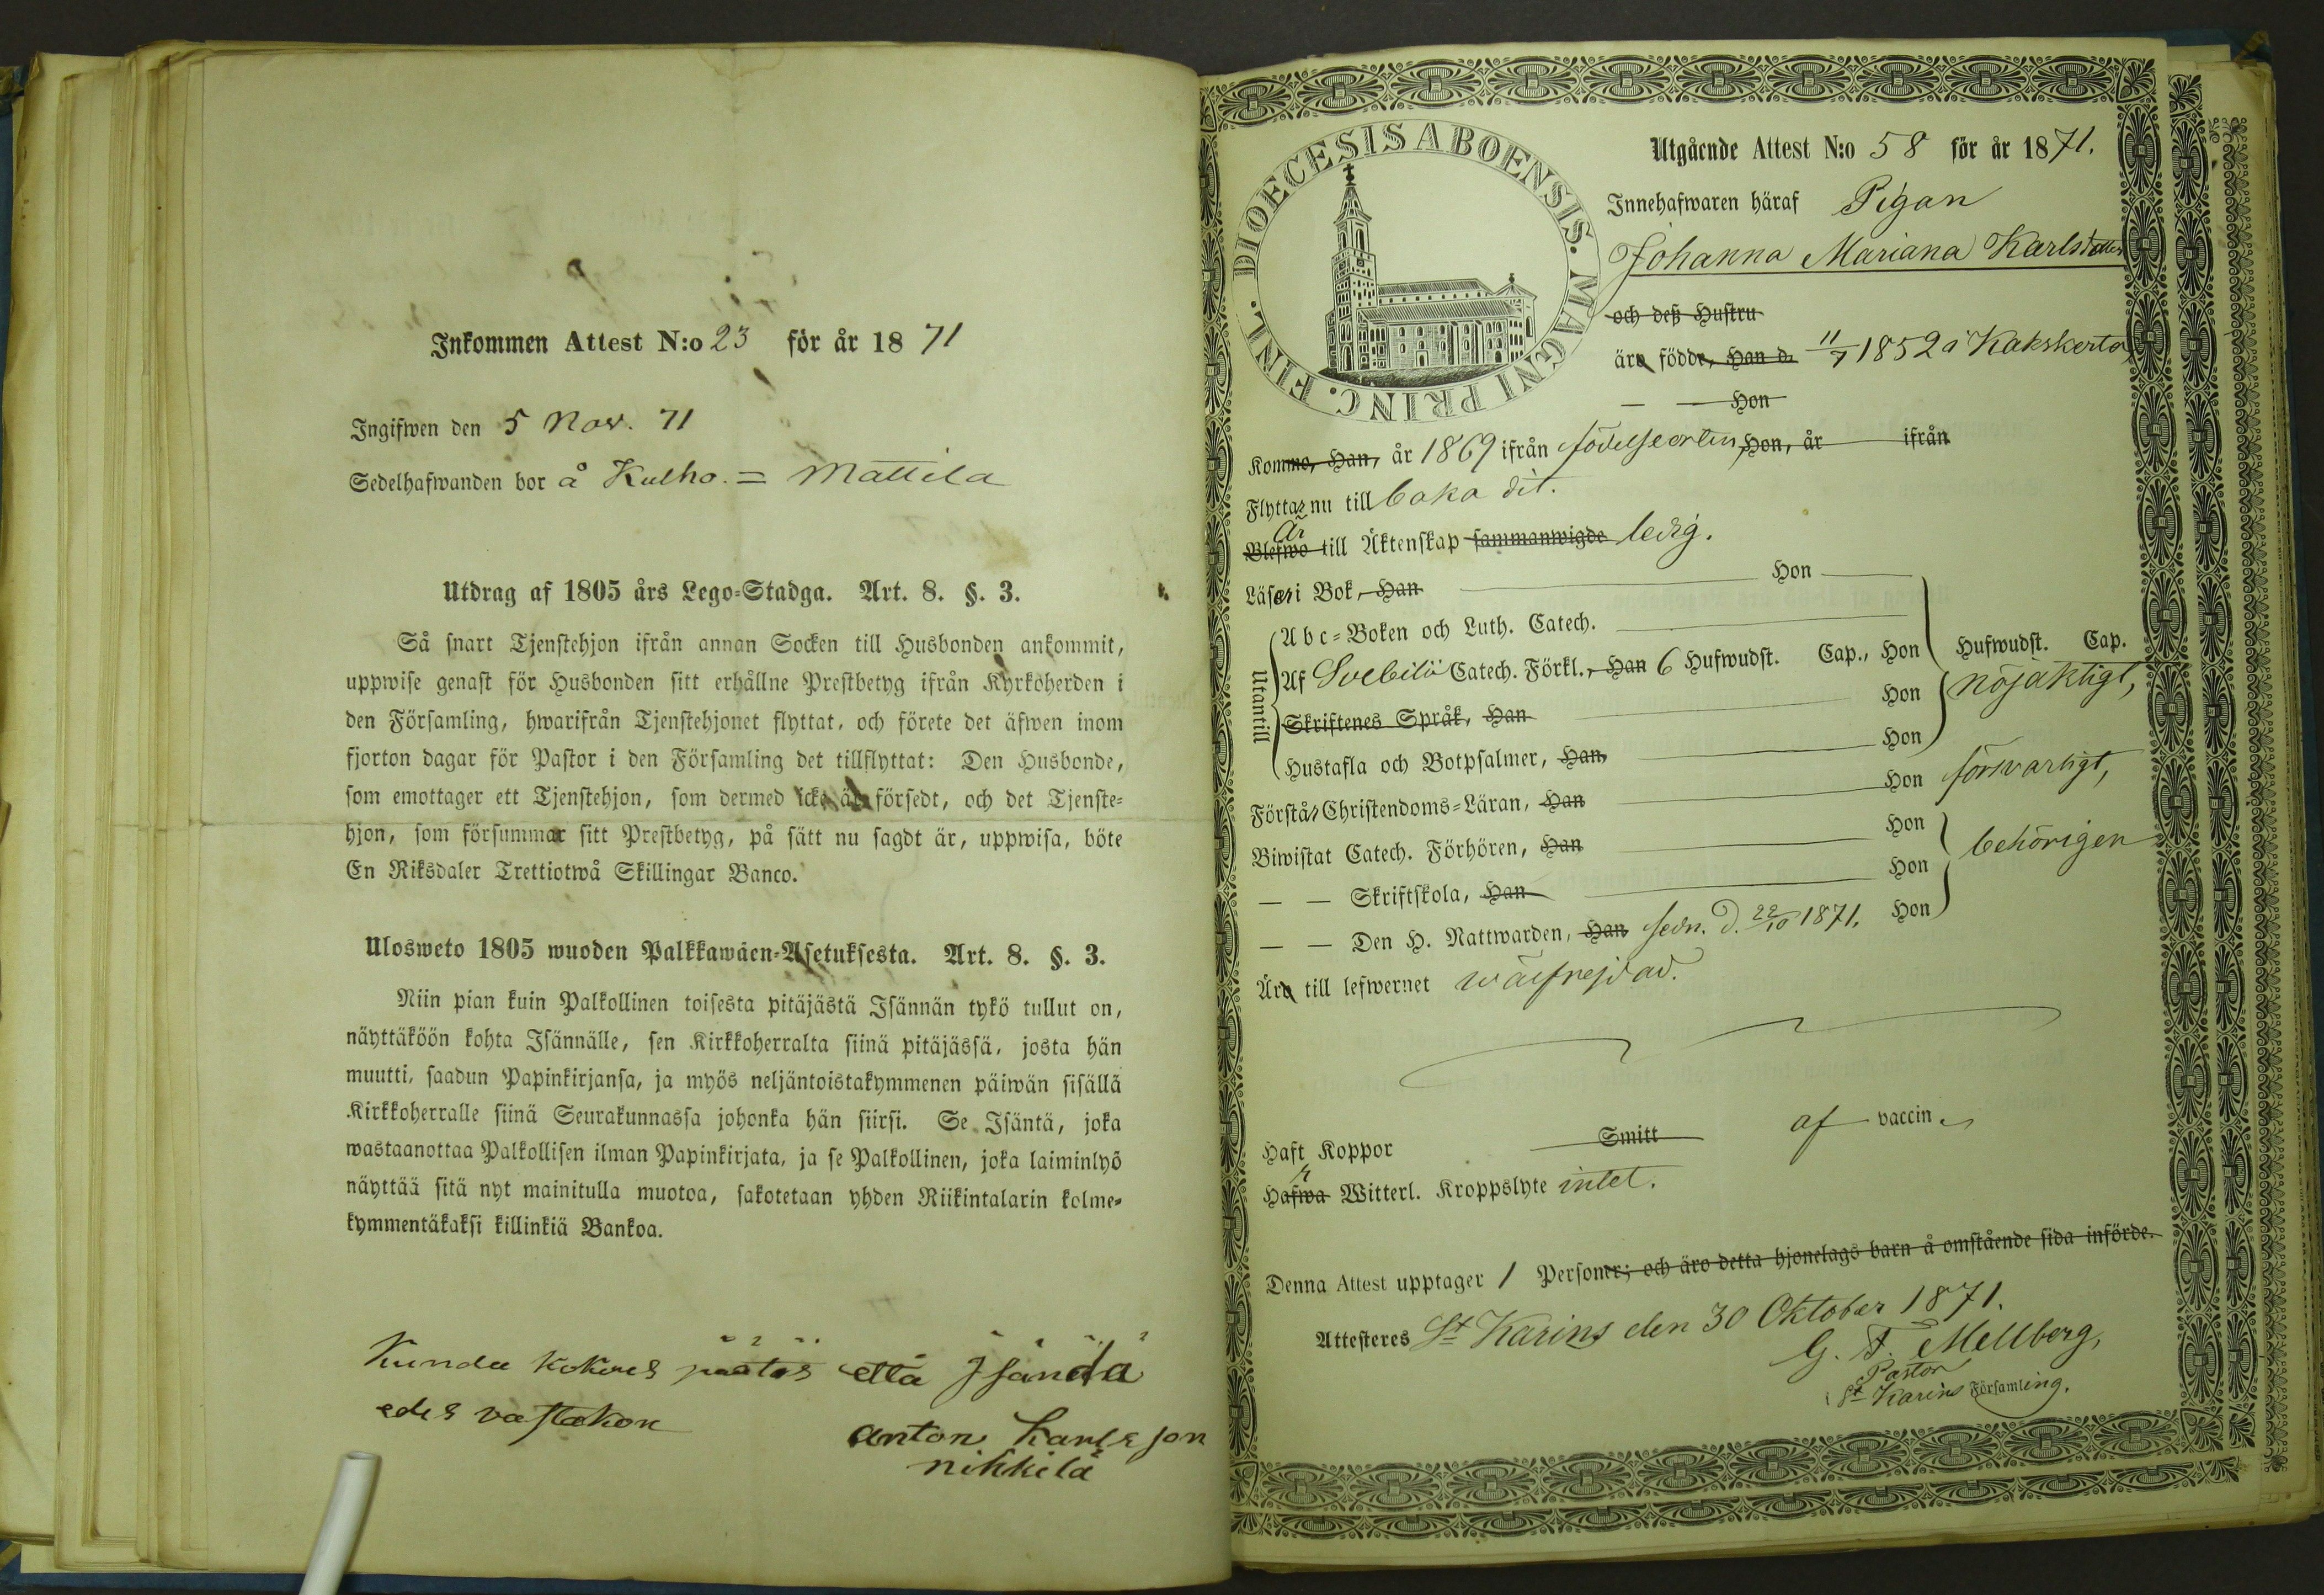 Inkommen Attest N:o 23 för år 1871
Ingifwen den 5 Nov. 71
Sedelhafwanden bor å Kulho. = Mattila
Utdrag af 1805 års Lego-Stadga. Art. 8. §. 3.
Så snart Tjenstehjon ifrån annan Socken till Husbonden ankommit,
uppwise genast för Husbonden sitt erhållne Prestbetyg ifrån Kyrkoherden i
den Församling, hwarifrån Tjenstehjonet flyttat, och förete det äfwen inom
fjorton dagar för Pastor i den Församling det tillflyttat: Den Husbonde,
som emottager ett Tjenstehjon, som dermed icke är försedt, och det Tjenste-
hjon, som försummar sitt Prestbetyg, på sätt nu sagdt är, uppwisa, böte
En Riksdaler Trettiotwå Skillingar Banco.
Ulosweto 1805 wuoden Palkkawäen-Asetuksesta. Art. 8. §. 3.
Niin pian kuin Palkollinen toisesta pitäjästä Isännän tykö tullut on,
näyttäköön kohta Isännälle, sen Kirkkoherralta siinä pitäjässä, josta hän
muutti, saadun Papinkirjansa, ja myös neljäntoistakymmenen päiwän sisällä
Kirkkoherralle siinä Seurakunnassa johonka hän siirsi. Se Isäntä, joka
wastaanottaa Palkollisen ilman Papinkirjata, ja se Palkollinen, joka laiminlyö
näyttää sitä nyt mainitulla muotoa, sakotetaan yhden Riikintalarin kolme-
kymmentäkaksi killinkiä Bankoa.
että
anton Karlsson
nikkilä
DIOECESIS ABOENSIS. MAGNI PRINC. FINL.
Utgående Attest N:o 58 för år 1871.
Innehafwaren häraf Pigan
Johanna Mariana Karlsdotter
och deß Hustru
äro födde, Han d. 11/7 1852 å Kakskerta
— — Hon
Kommo, Han, år 1869 ifrån födelseorten, Hon, år ifrån
Flyttar nu till baka dit.
Är
Blefwo till Äktenskap sammanwigde ledig.
Läser i Bok, Han Hon
Utantill
Abc-Boken och Luth. Catech.
Af Svebilii Catech. Förkl., Han 6 Hufwudst. Cap., Hon Hufwudst. Cap.
Skriftenes Språk, Han Hon nöjaktigt,
Hustafla och Botpsalmer, Han, Hon
Förstår Christendoms-Läran, Han Hon försvarligt,
Biwistat Catech. Förhören, Han Hon
— — Skriftskola, Han Hon behörigen
— — Den H. Nattwarden, Han sedn. d. 22/10 1871. Hon
Äro till lefwernet wälfrejdad.
Haft Koppor Smitt af vaccin
Hafwa Witterl. Kroppslyte intet.
Denna Attest upptager 1 Personer; och äro detta hjonelags barn å omstående sida införde.
Attesteres St Karins den 30 Oktober 1871.
G. F. Mellberg,
Pastor
St Karins Församling.